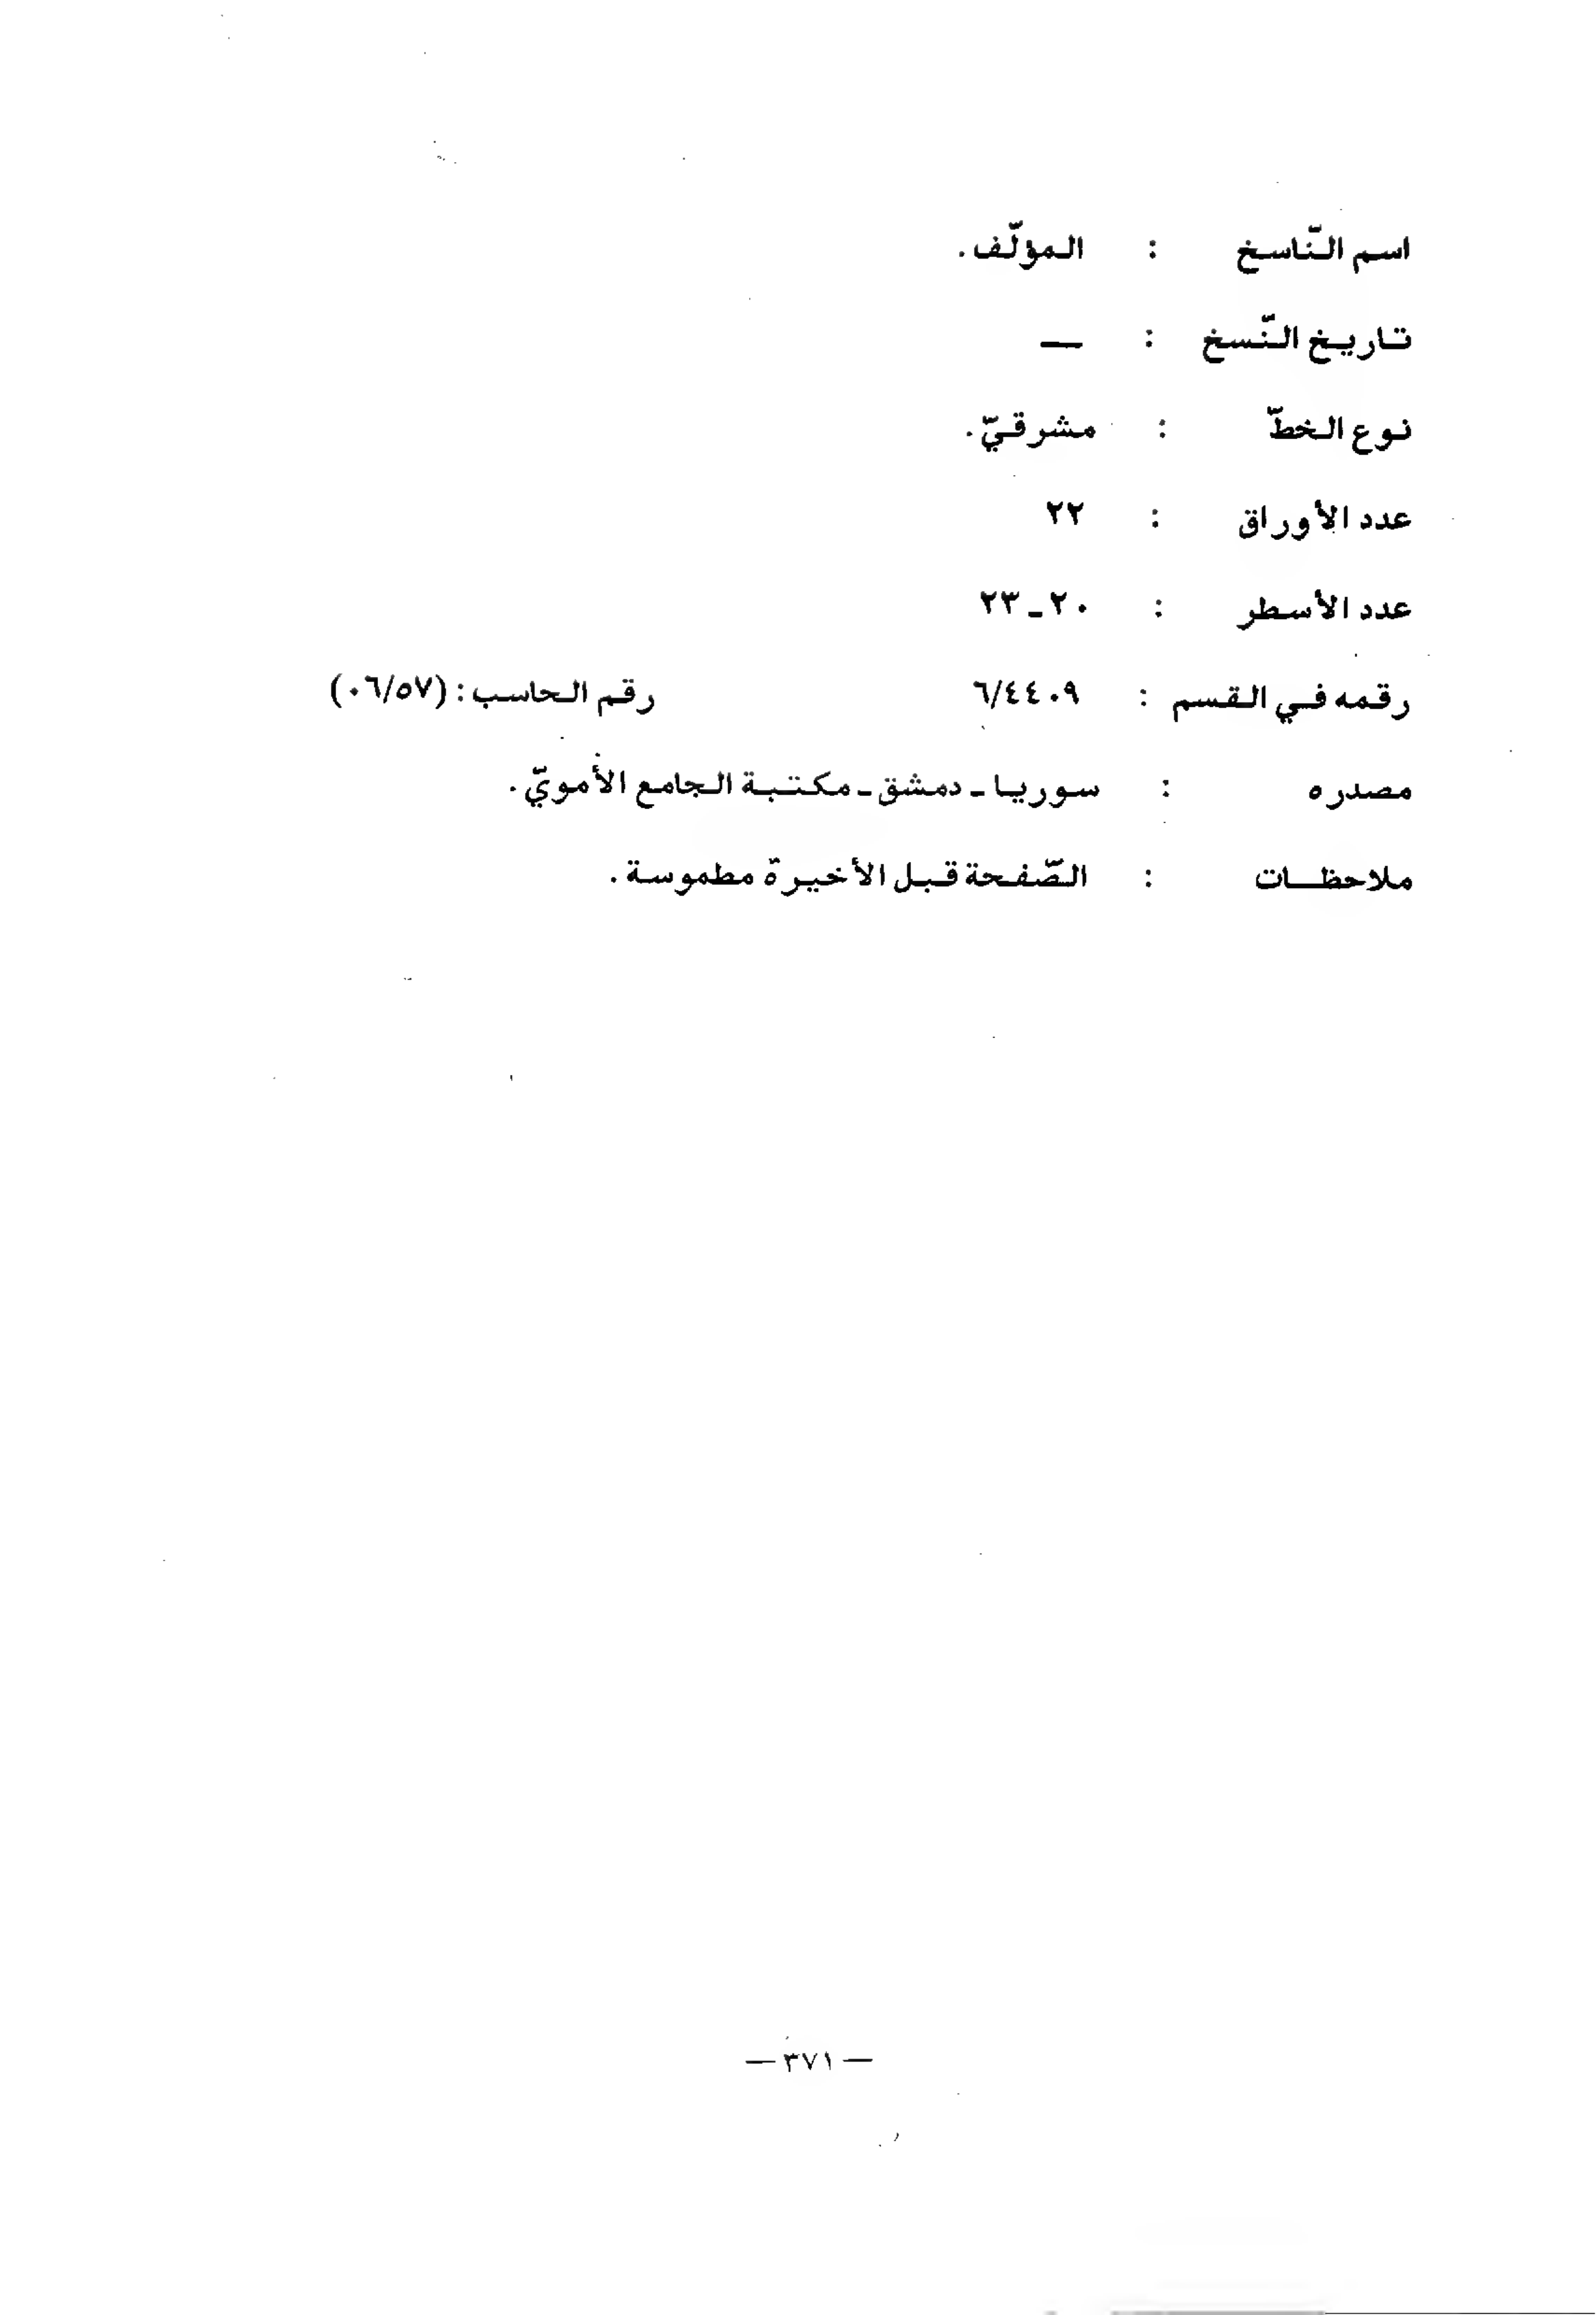 اسم النّاسخ : المؤلّف.
تاريخ النّسخ : —
نوع الخطّ : مشرقيّ.
عدد الأوراق : ٢٢
عدد الأسطر : ٢٠ ـ ٢٣
رقمه في القسم : ٦/٤٤٠٩ رقم الحاسب : (٠٦/٥٧)
مصدره : سوريا ـ دمشق ـ مكتبة الجامع الأمويّ.
ملاحظات : الصّفحة قبل الأخيرة مطموسة.
— ٣٧١ —